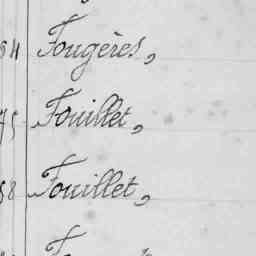 84 Fougères,
75 Fouillet,
58 Fouillet,